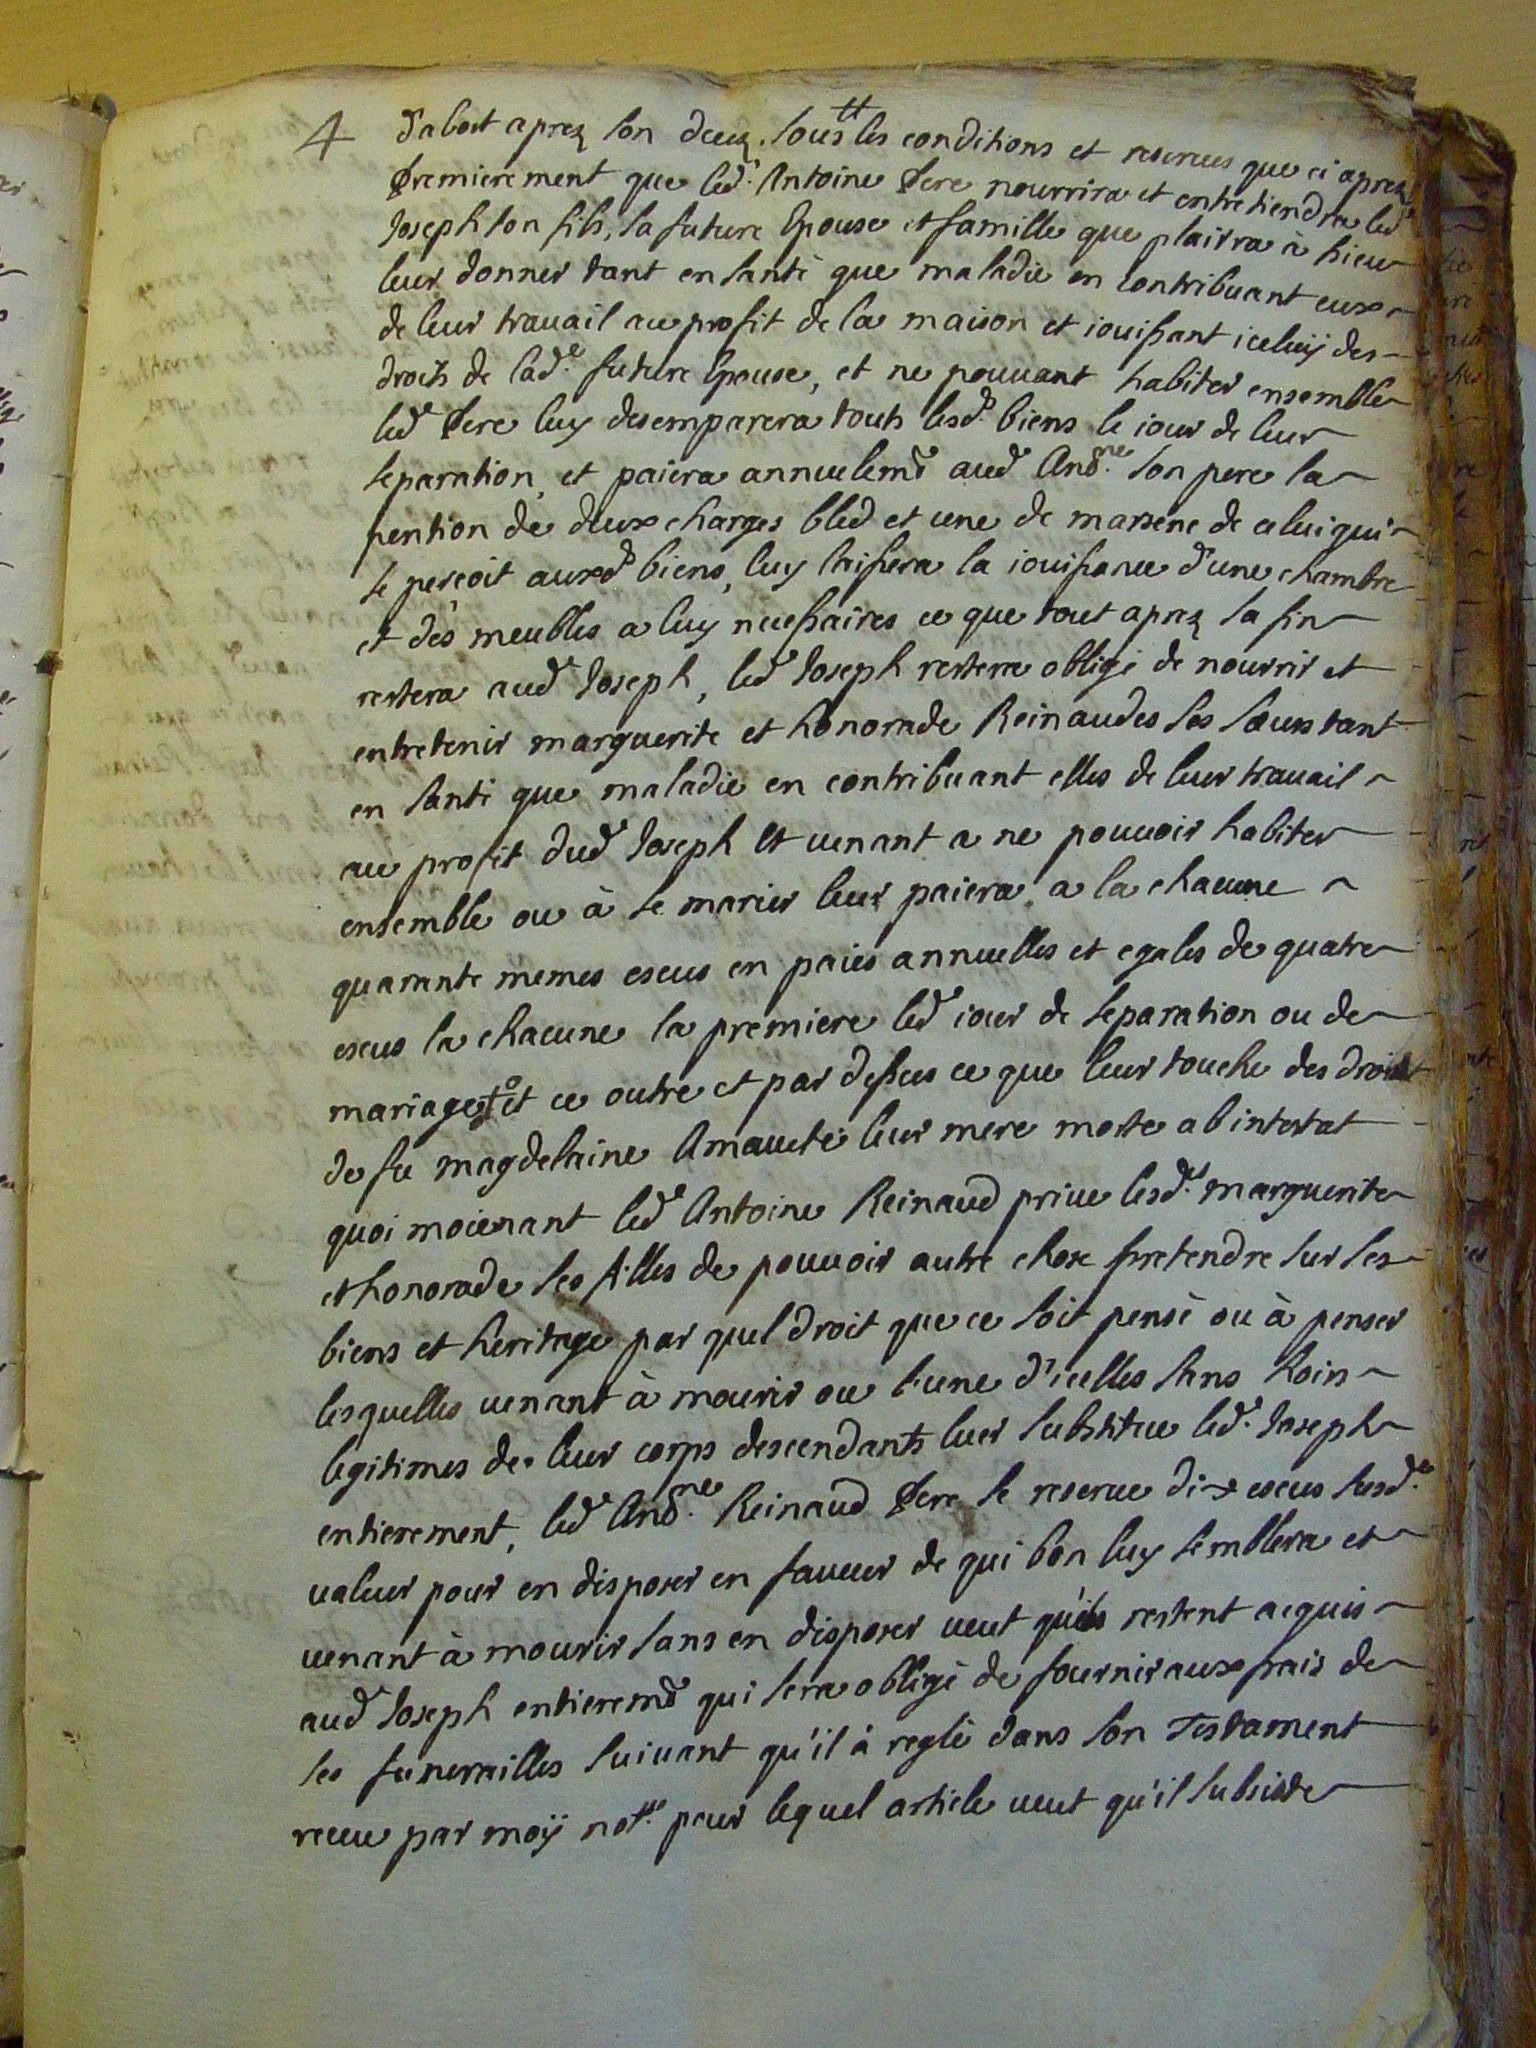 4 d'abort aprez son decez. sous tt les conditions et reserves que ci aprez
Premierement que led. Antoine Pere nourrira et entretiendra led
Joseph son fils, sa future Epouse et famille que plairra à Dieu
leur donner tant en santé que maladie en contribuant eux
de leur travail au profit de la maison et iouissant iceluÿ des
droits de lad.e future Epouse, et ne pouvant habiter ensemble
led Pere luy desemparera touts lesd. biens le iour de leur
separation, et paiera annuelemt aud Antne son pere la
pention de deux charges bled et une de marsene de celui qui
se percoit auxd biens, luy laissera la iouissance d'une chambre
et dés meubles a luy necessaires ce que tout aprez sa fin
restera aud Joseph, led Joseph restera obligé de nourrir et
entretenir marguerite et honorade Reinaudes ses sœurs tant
en santé que maladie en contribuant elles de leur travail
au profit dud Joseph Et venant a ne pouvoir habiter
ensemble ou à se marier leur paiera a la chacune
quarante memes escus en paies annuelles et egales de quatre
escus la chacune la premiere led iour de separation ou de
mariage et ce outre et par dessus ce que leur touche des droits
de fu magdelaine Amavete leur mere morte abintestat
quoi moienant led Antoine Reinaud prive lesd. marguerite
et honorade ses filles de pouvoir autre chose pretendre sur ses
biens et heritage par quel droit que ce soit pensé ou à penser
lesquelles venant à mourir ou l'une d'icelles sans hoirs
legitimes de leur corps descendants luer substitue led. Joseph
entierement, led Antne. Reinaud Pere se reserve dix escus susd.
valeur pour en disposer en faveur de qui bon luy semblera et
venant à mourir sans en disposer veut qu'ils restent acquis
aud Joseph entieremt qui sera obligé de fournir aux frais de
ses funerailles suivant qu'il à reglé dans son Testament
receu par moÿ notre. pour lequel article veut qu'il subsiste